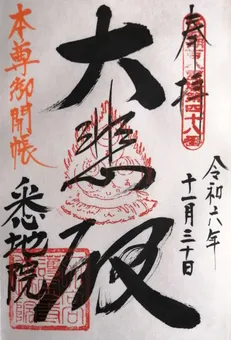 奉拝
令和六年
十一月三十日
大悲殿
本尊御開帳
悉地院